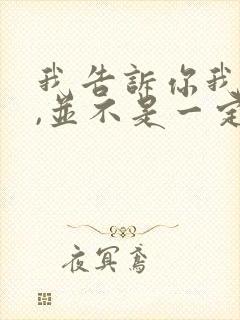 我告訴你我
,並不是一定
夜冥鳶